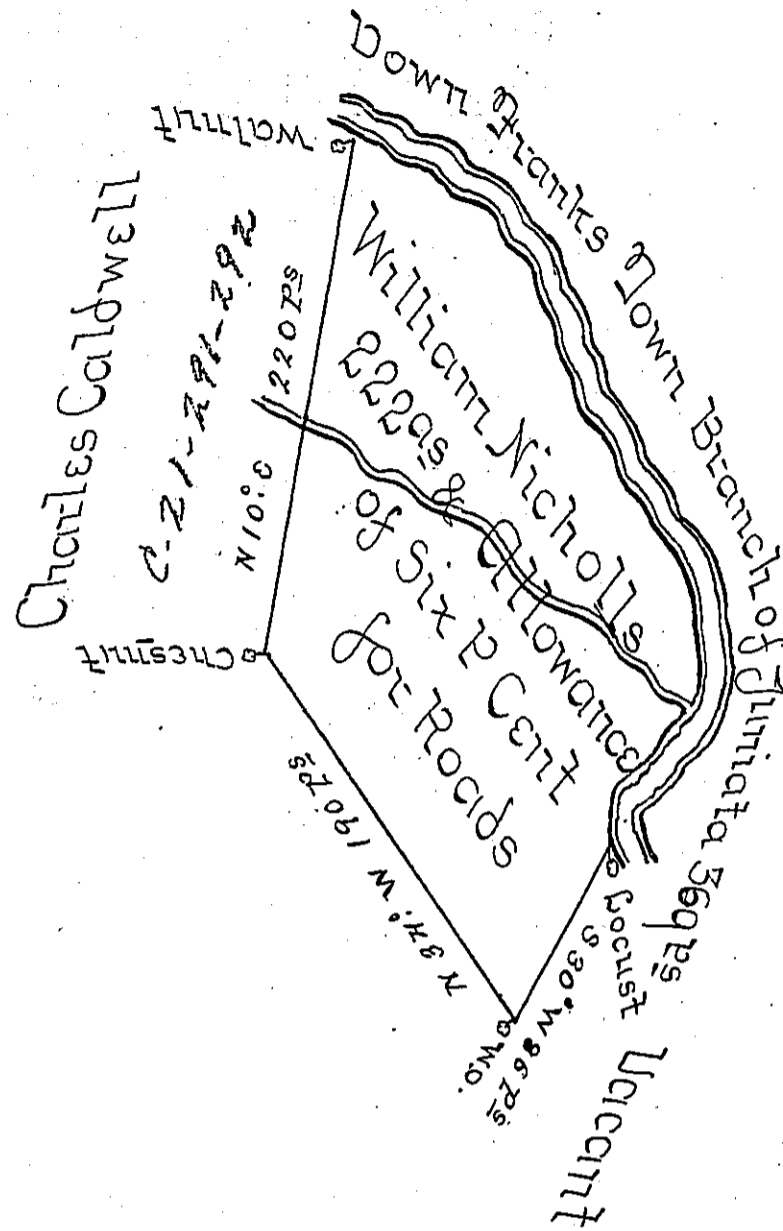 Down Franks Town Branch of Juniata 369 Ps
Walnut
Charles Caldwell
C-21-291-292
N 10° E
220 Ps
William Nicholls
222 as & Allowance
of Six P Cent
for Roads
Chesnut
N 34° W 190 Ps
W.O.
S 30° W 86 Ps
Locust
Vacant